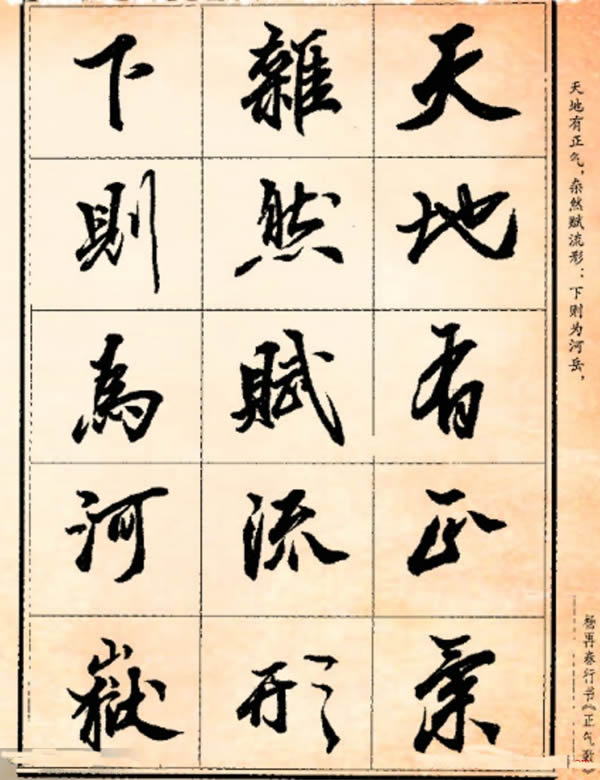 天地有正气，杂然赋流形：下则为河岳，
杨再春行书《正气歌》
天地有正氣
雜然賦流形
下則為河嶽